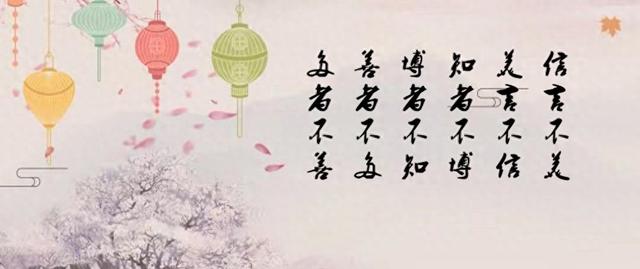 信言不美
美言不信
知者不博
博者不知
善者不多
多者不善